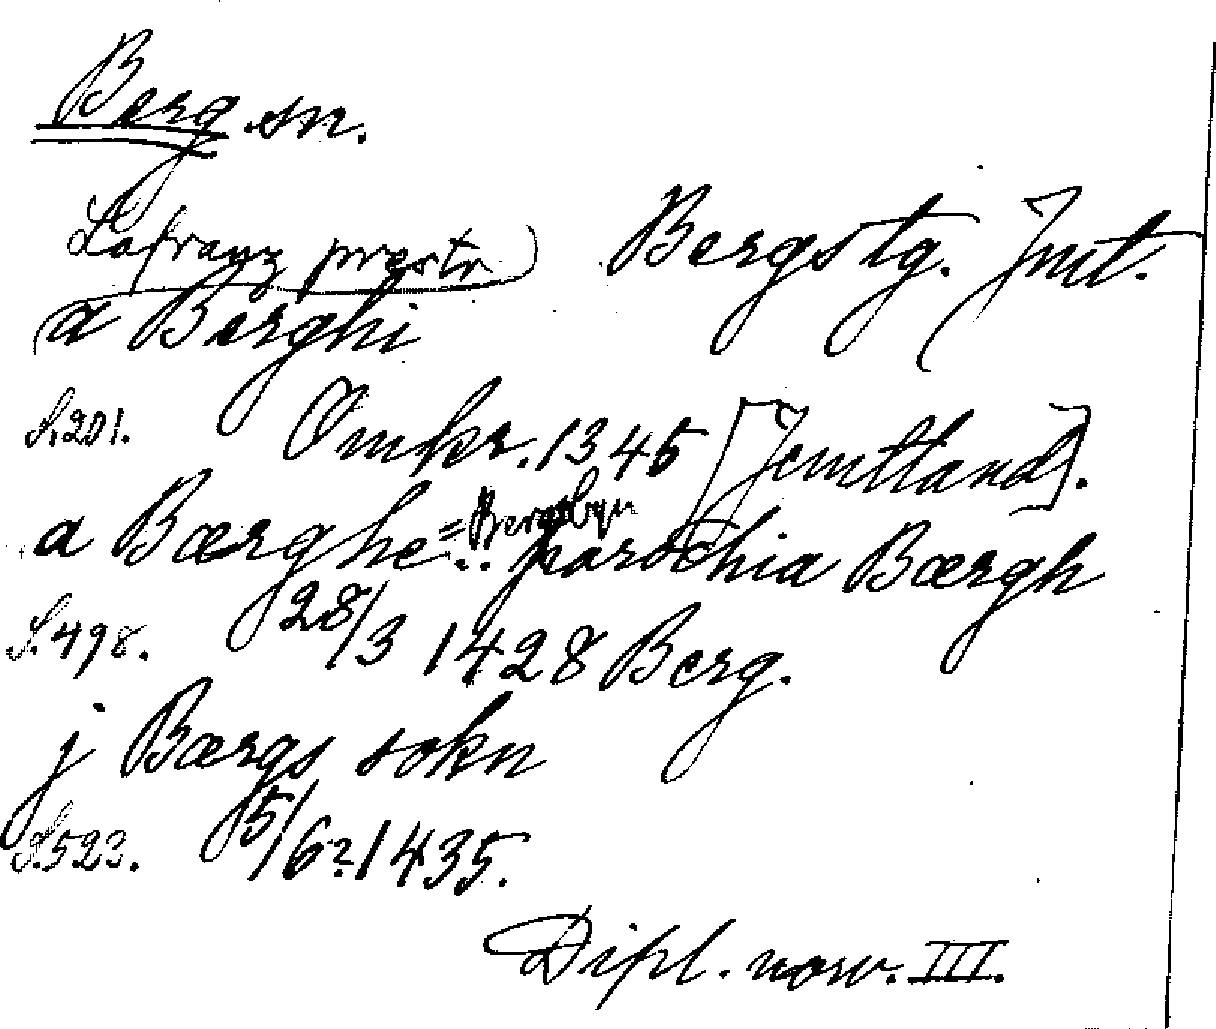 Berg sn.
Lafranz prestr Bergs tg. Jmt.
a Berghi
S. 201. Omkr. 1345 [Jemtland].
a Bærghe =Bergsbyn .. parochia Bærgh
S. 498. 28/3 1428 Berg.
j Bærgs sokn
S. 523. 5/6? 1435.
Dipl. norv. III.